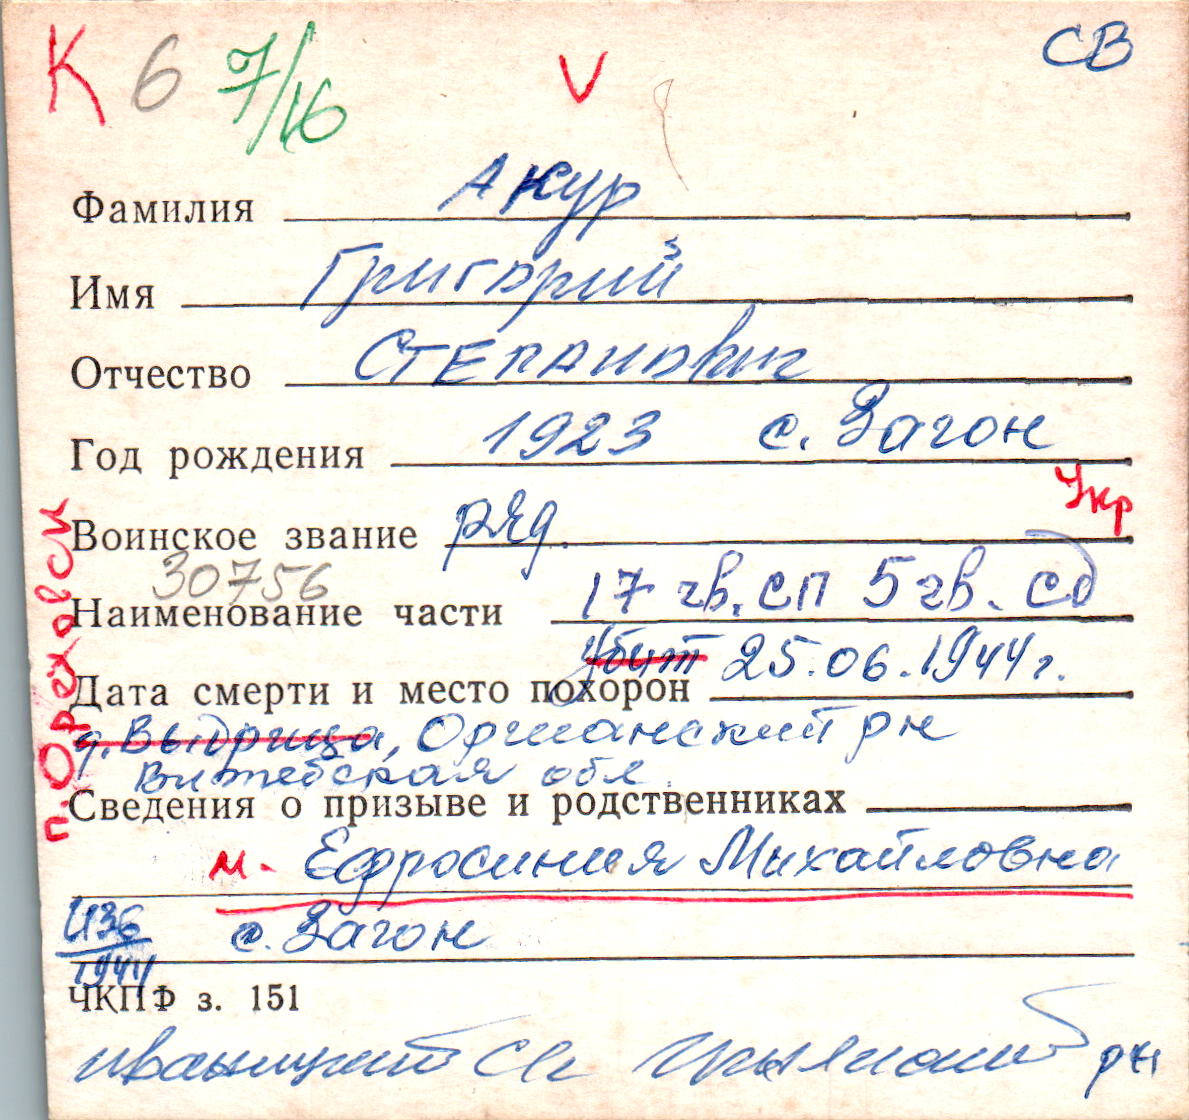 К 6 7/16 V СВ
Фамилия Акур
Имя Григорий
Отчество Степанович
Год рождения 1923 с. Загон
Укр
Воинское звание ряд.
30756
Наименование части 17 гв. сп 5 гв. сд
убит 25.06.1944 г.
Дата смерти и место похорон
д. Выдрица, Оршанский рн
Витебская обл.
п. Ореховск
Сведения о призыве и родственниках
м. - Ефросиния Михайловна
с. Загон
1944
ЧКПФ з. 151
рн